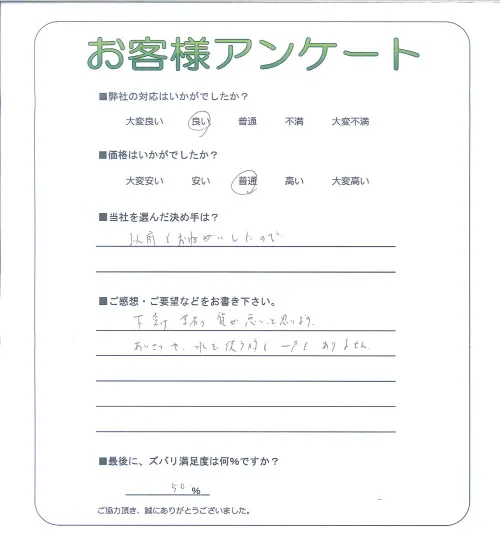 お客様アンケート
■弊社の対応はいかがでしたか？
大変良い 良い 普通 不満 大変不満
■価格はいかがでしたか？
大変安い 安い 普通 高い 大変高い
■当社を選んだ決め手は？
以前もお願いしたので
■ご感想・ご要望などをお書き下さい。
下受け 質が悪いと思います。
あいさつや、水を使う時も一声もありません。
■最後に、ズバリ満足度は何％ですか？
50％
ご協力頂き、誠にありがとうございました。